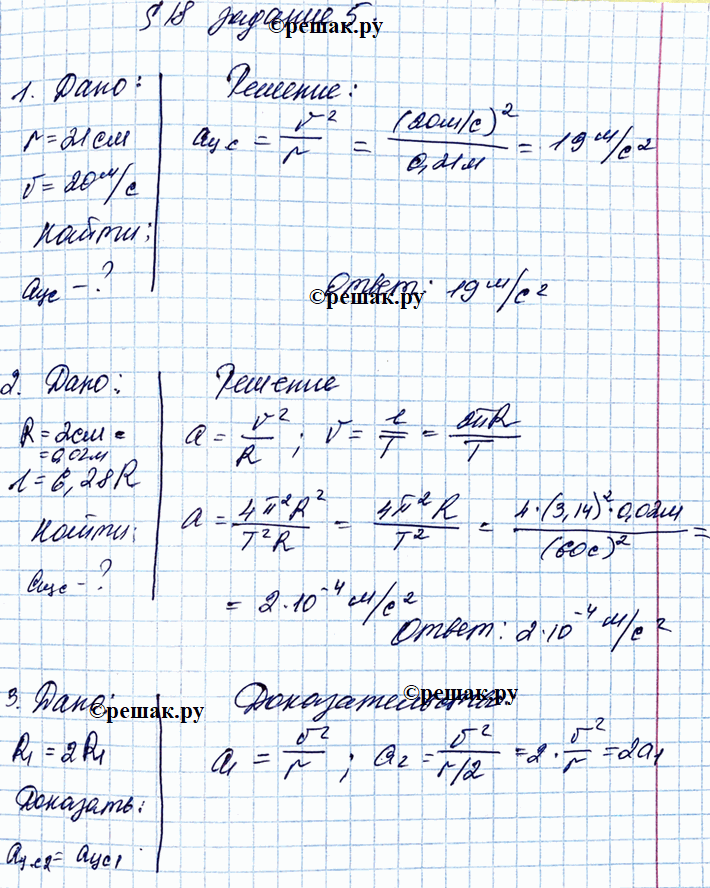 § 18 задание 5
©решак.ру
1. Дано:
r = 21 см
v = 20 м/с
Найти:
aцс – ?
Решение:
aцс = v²/r = (20 м/с)²/0,21 м = 19 м/с²
Ответ: 19 м/с²
©решак.ру
2. Дано:
R = 2 см =
= 0,02 м
l = 6,28R
Найти:
aцс – ?
Решение
a = v²/R ; v = l/T = 2πR/T
a = 4π²R²/T²R = 4π²R/T² = 4·(3,14)²·0,02м/(60с)² =
= 2·10⁻⁴ м/с²
Ответ: 2·10⁻⁴ м/с²
3. Дано:
©решак.ру
R₁ = 2R₁
Доказать:
aцс2 = aцс1
Доказательство
©решак.ру
a₁ = v²/r ; a₂ = v²/r/2 = 2·v²/r = 2a₁